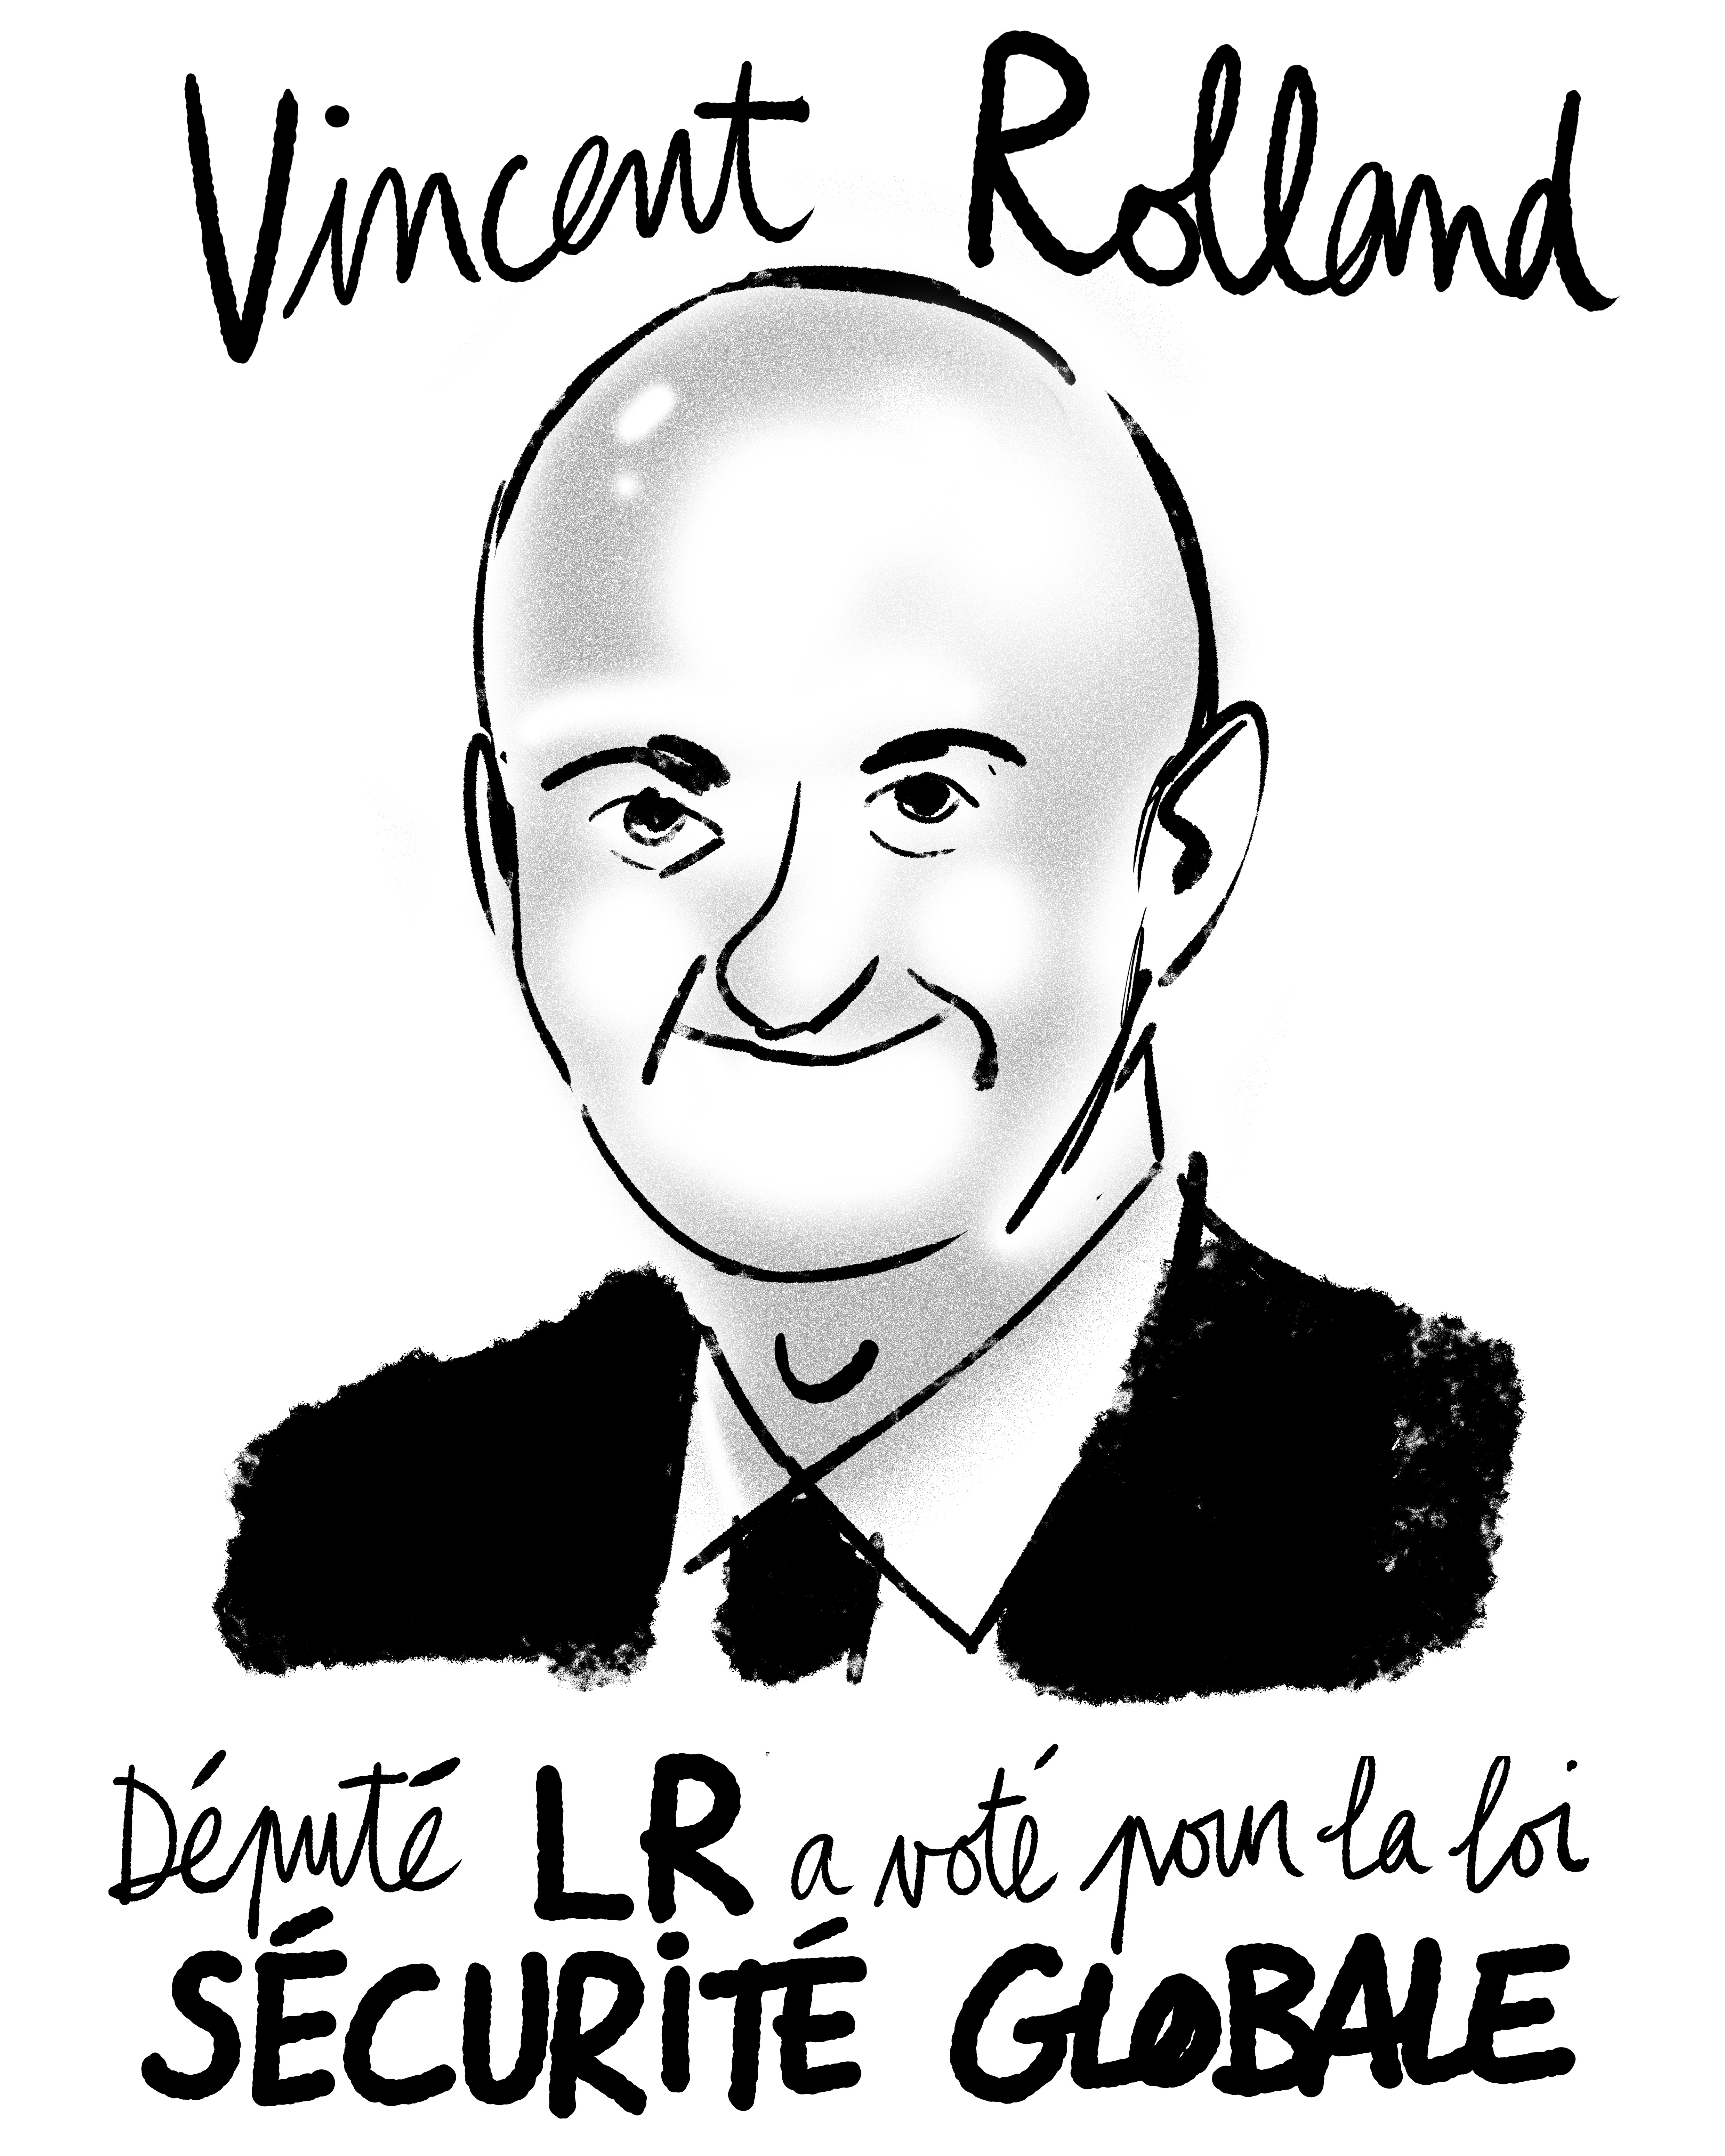 Vincent Rolland
Député LR a voté pour la loi
SÉCURiTÉ GLOBALE